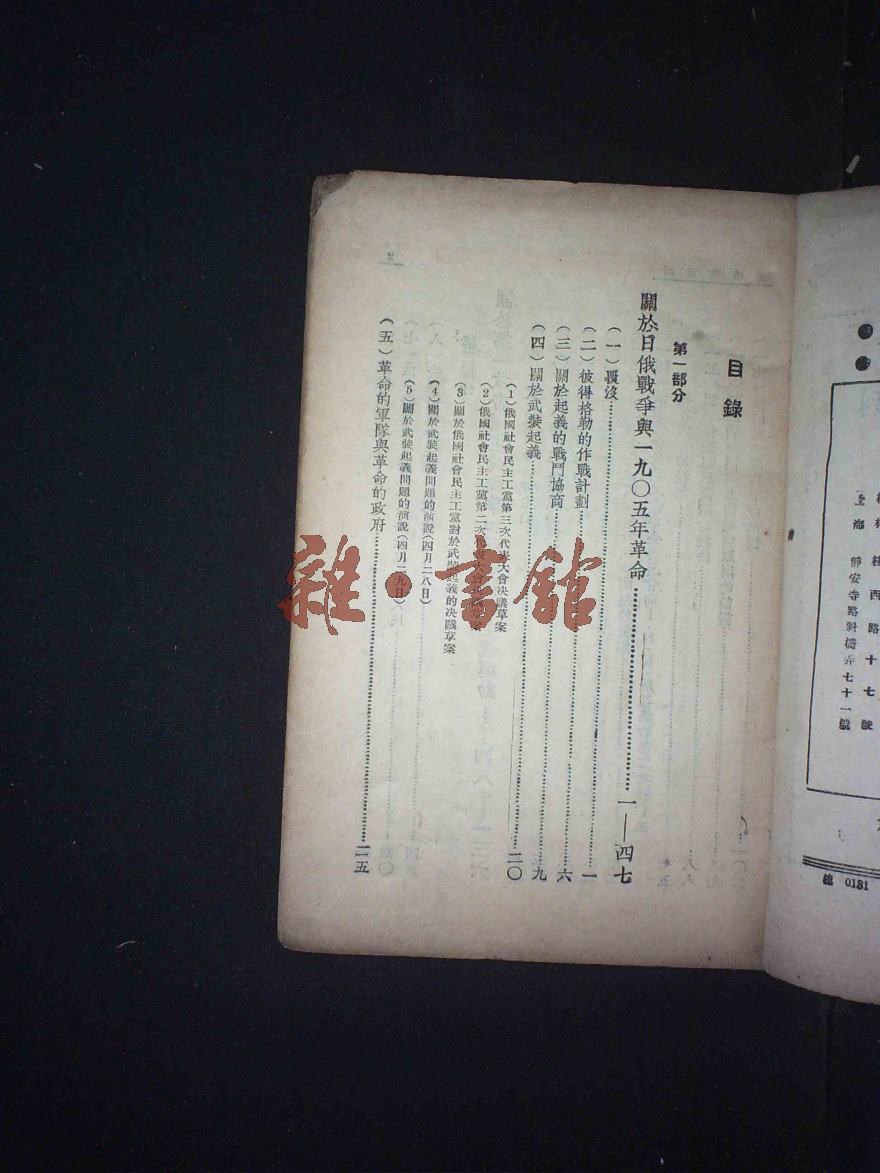 目錄
第一部分
關於日俄戰爭與一九〇五年革命……一——四七
(一)覆沒……一
(二)彼得格勒的作戰計劃……一
(三)關於起義的戰鬥協商……六
(四)關於武裝起義……九
(1)俄國社會民主工黨第三次代表大會決議草案……二〇
(2)俄國社會民主工黨第二次代表大會決議草案
(3)關於俄國社會民主工黨對於武裝起義的決議草案
(4)關於武裝起義問題的演說(四月二八日)
(5)關於武裝起義問題的演說(四月二九日)
(五)革命的軍隊與革命的政府……二五
桂西路十七號
上海靜安寺路斜橋弄七十一號
0131
雜·書館